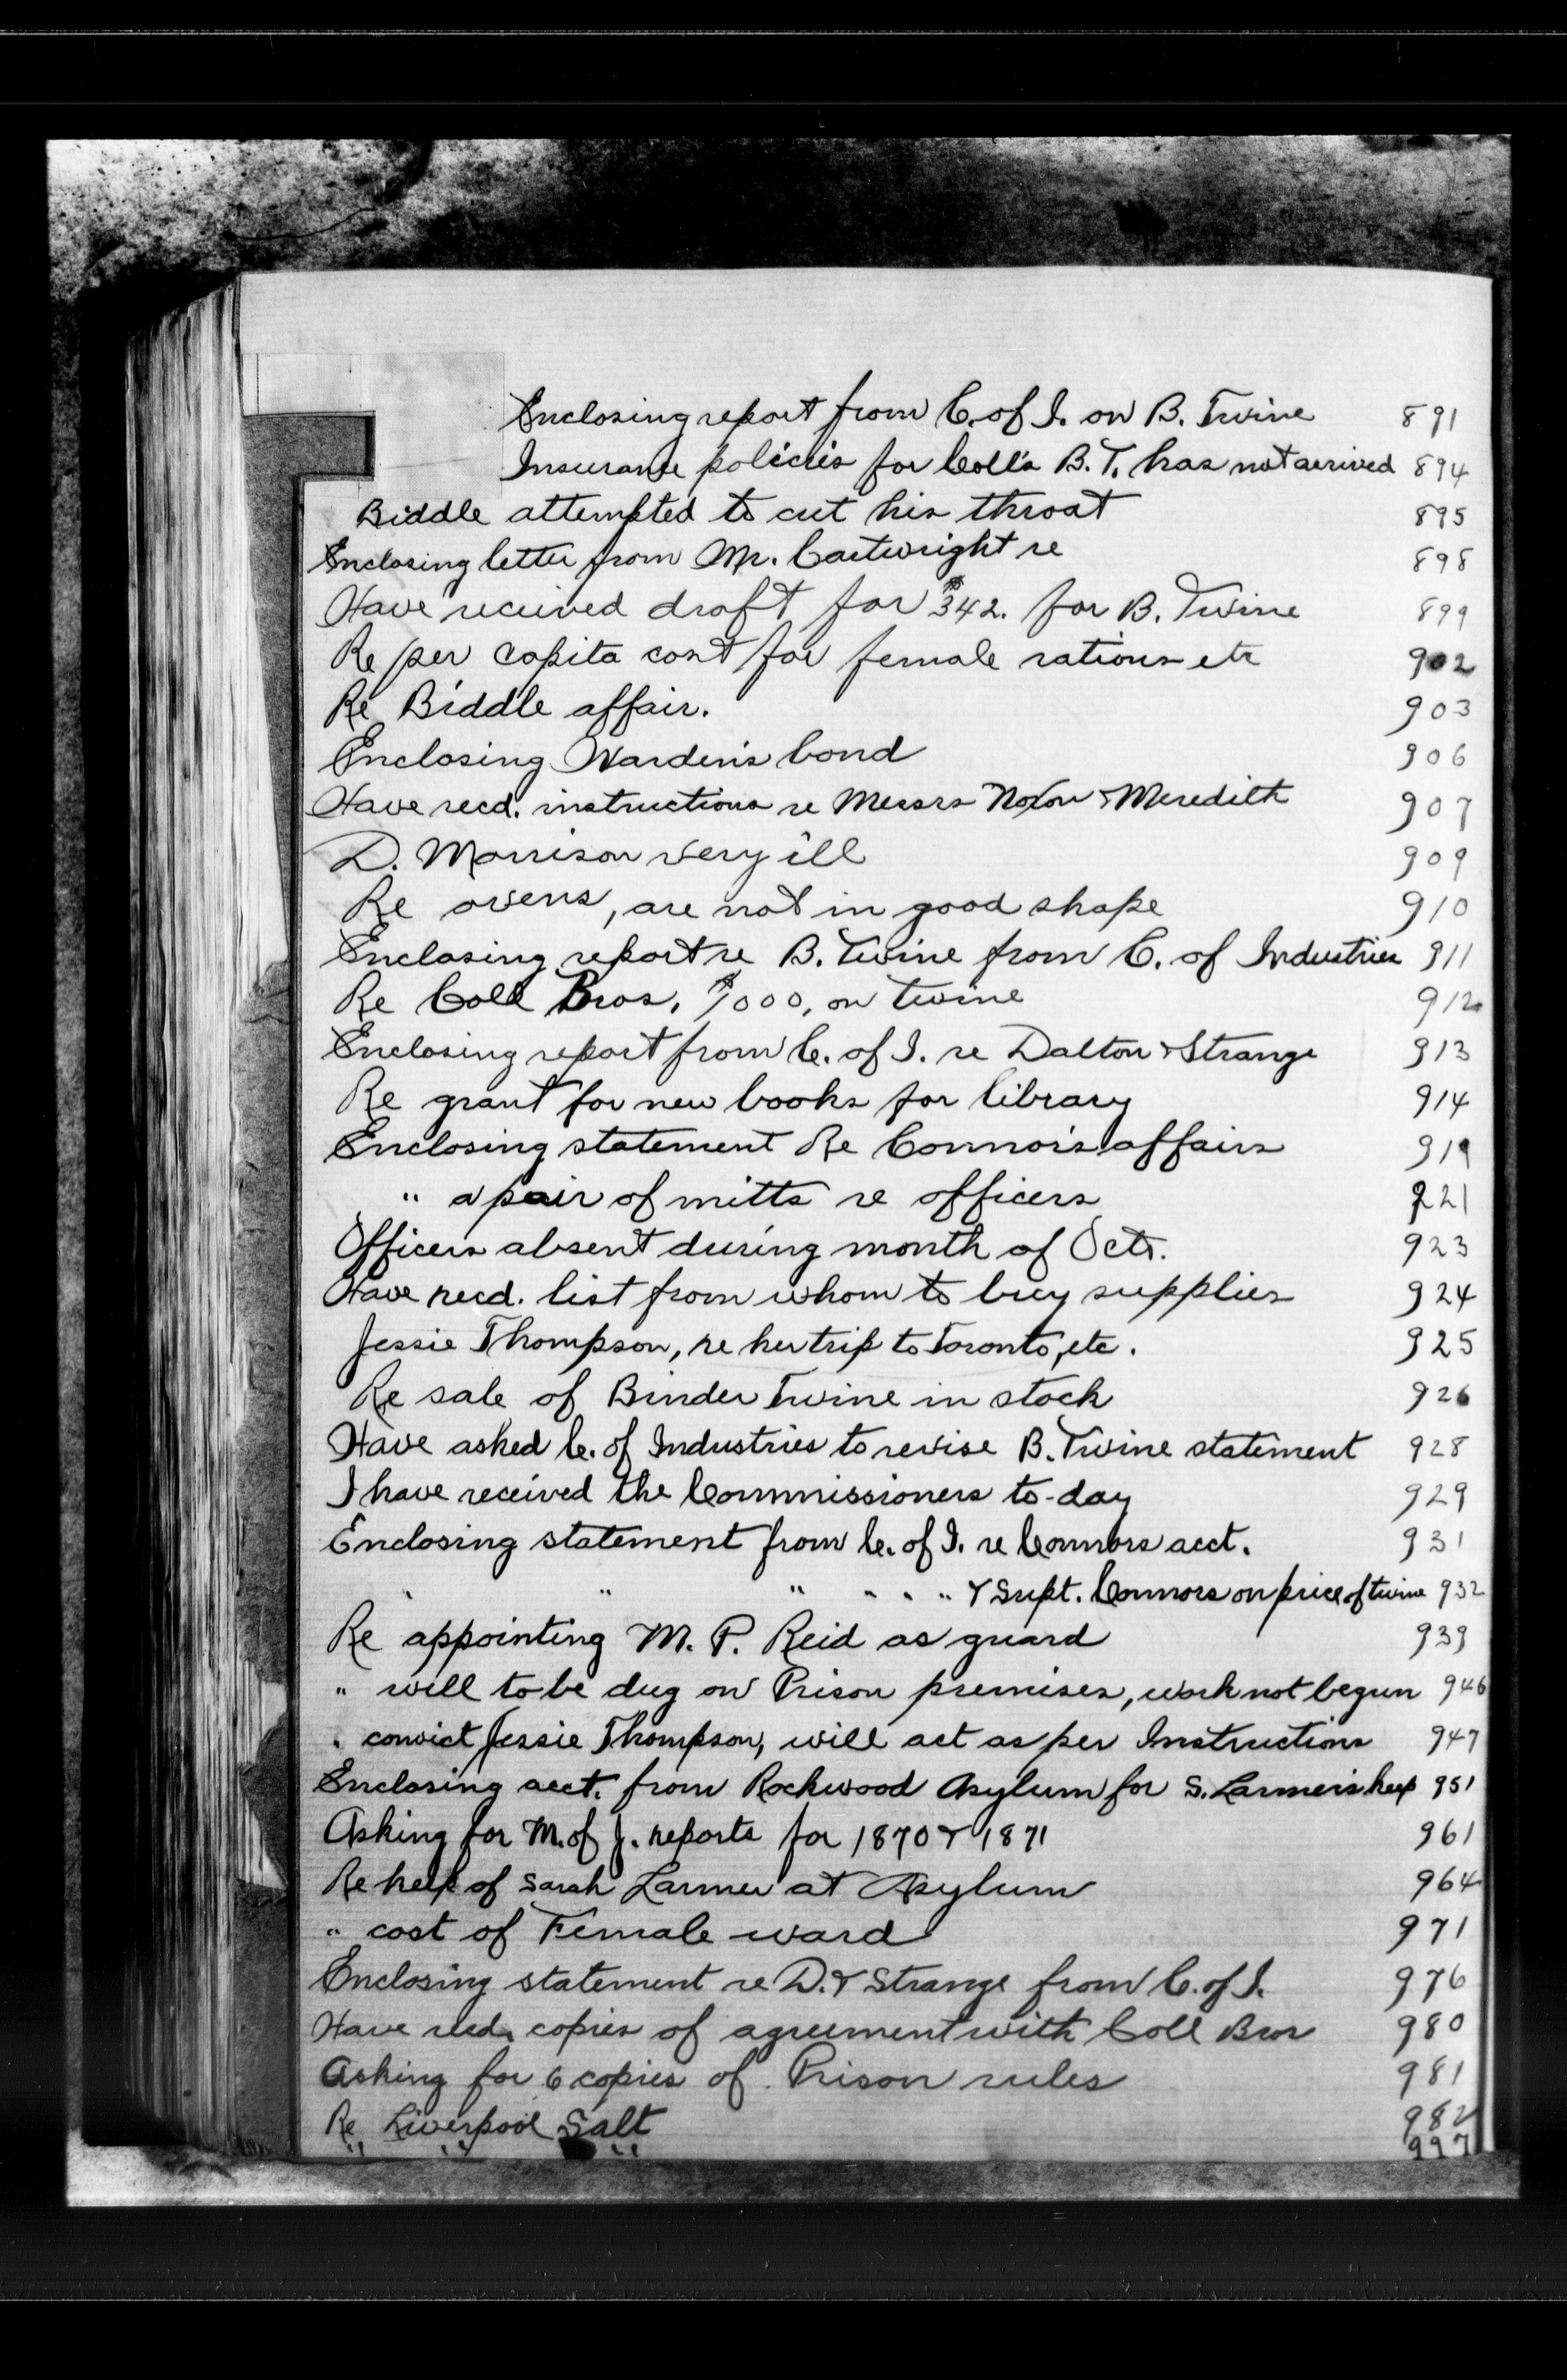 Enclosing report from C. of I. on B. Twine 891
Insurance policies for Coll's B.T. has not arrived 894
Biddle attempted to cut his throat 895
Enclosing letter from Mr. Cartwright re 898
Have received draft for $342. for B. Twine 899
Re per capita cost for female rations etc 902
Re Biddle affair. 903
Enclosing Warden's bond 906
Have recd. instructions re Messrs Noxon & Meredith 907
D. Morrison very ill 909
Re ovens, are not in good shape 910
Enclosing report re B. Twine from C. of Industries 911
Re Coll Bros. $1000, on twine 912
Enclosing report from C. of I. re Dalton & Strange 913
Re grant for new books for library 914
Enclosing statement Re Connor's affairs 919
" a pair of mitts re officers 921
Officers absent during month of Oct. 923
Have recd. list from whom to buy supplies 924
Jessie Thompson, re her trip to Toronto, etc. 925
Re sale of Binder Twine in stock 926
Have asked C. of Industries to revise B. Twine statement 928
I have received the Commissioners to-day 929
Enclosing statement from C. of I. re Connors acct. 931
" " " " " " & Supt. Connors on price of twine 932
Re appointing M. P. Reid as guard 939
" well to be dug on Prison premises, work not begun 946
" convict Jessie Thompson, will act as per Instructions 947
Enclosing acct. from Rockwood Asylum for S. Larmer's keep 951
Asking for M. of J. reports for 1870 & 1871 961
Re keep of Sarah Larmer at Asylum 964
" cost of Female ward 971
Enclosing statement re D. & Strange from C. of I. 976
Have recd. copies of agreement with Coll Bros 980
Asking for 6 copies of Prison rules 981
Re Liverpool Salt 982
" " " 997